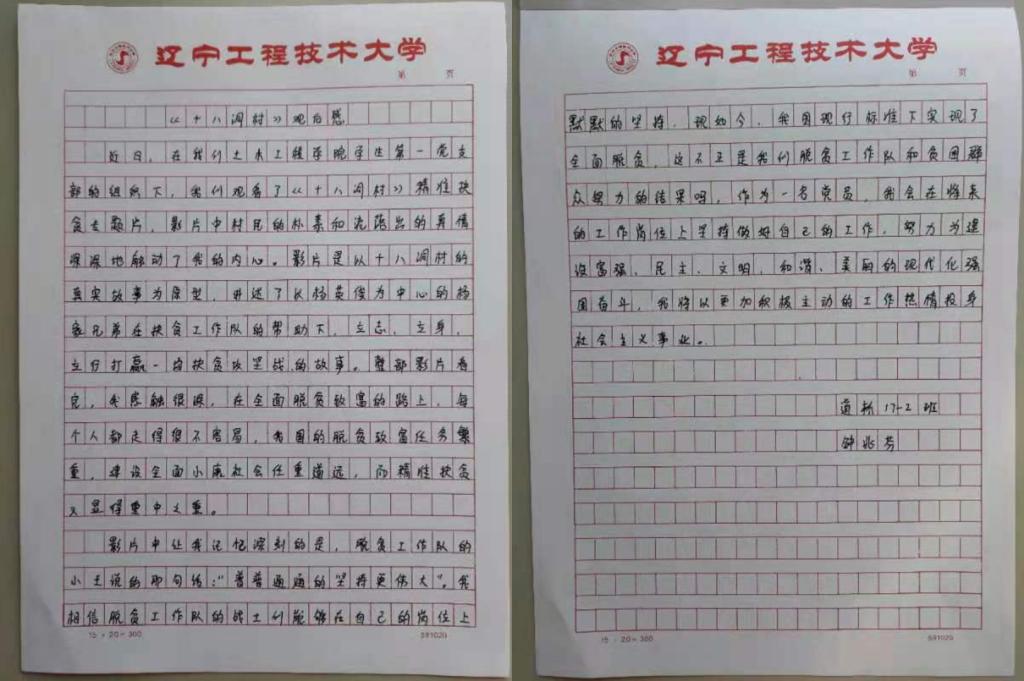 辽宁工程技术大学
第 页
《十八洞村》观后感
近日，在我们土木工程学院学生第一党支
部的组织下，我们观看了《十八洞村》精准扶
贫专题片，影片中村民的朴素和流露出的真情
深深地触动了我的内心。影片是以十八洞村的
真实故事为原型，讲述了以杨英俊为中心的杨
家兄弟在扶贫工作队的帮助下，立志，立身，
立行打赢一场扶贫攻坚战的故事。整部影片看
完，我感触很深，在全面脱贫致富的路上，每
个人都走得很不容易，我国的脱贫致富任务繁
重，建设全面小康社会任重道远，而精准扶贫
又显得重中之重。
影片中让我记忆深刻的是，脱贫工作队的
小王说的那句话："普普通通的坚持更伟大"。我
相信脱贫工作队的战士们能够在自己的岗位上
15×20=300
591020
辽宁工程技术大学
第 页
默默的坚持，现如今，我国现行标准下实现了
全面脱贫，这不正是我们脱贫工作队和贫困群
众努力的结果吗，作为一名党员，我会在将来
的工作岗位上坚持做好自己的工作，努力为建
设富强、民主、文明，和谐、美丽的现代化强
国奋斗，我将以更加积极主动的工作热情投身
社会主义事业。
道桥17-2班
钟兆芬
15×20=300
591020